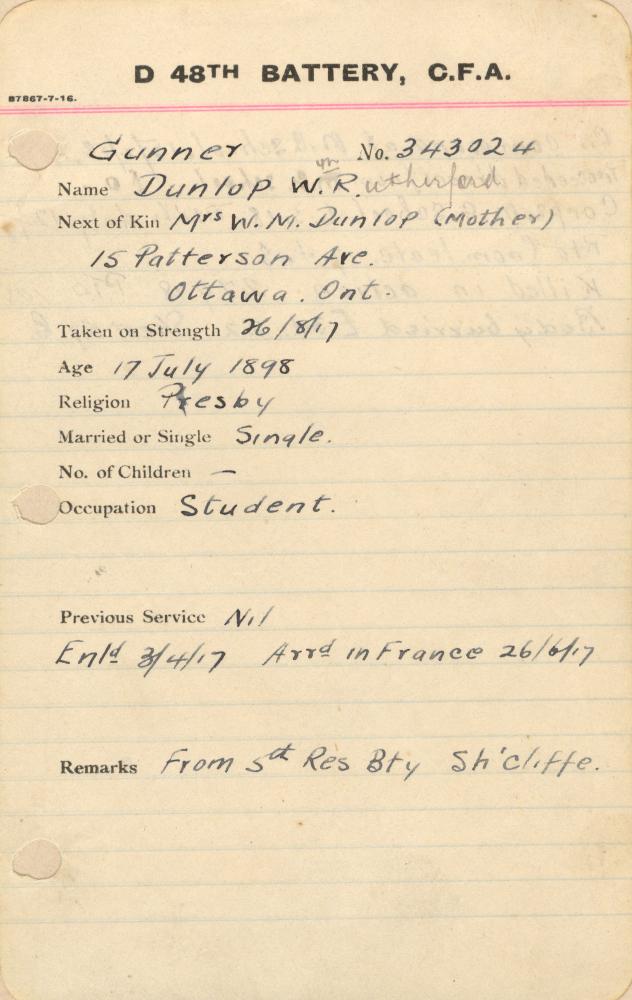 D 48TH BATTERY, C.F.A.
87867-7-16.
Gunner No. 343024
Wm
Name Dunlop W. R.utherford
Next of Kin Mrs W. M. Dunlop (Mother)
15 Patterson Ave.
Ottawa. Ont.
Taken on Strength 26/8/17
Age 17 July 1898
Religion Presby
Married or Single Single.
No. of Children —
Occupation Student.
Previous Service Nil
Enld 3/4/17 Arrd in France 26/6/17
Remarks From 5th Res Bty Sh'cliffe.